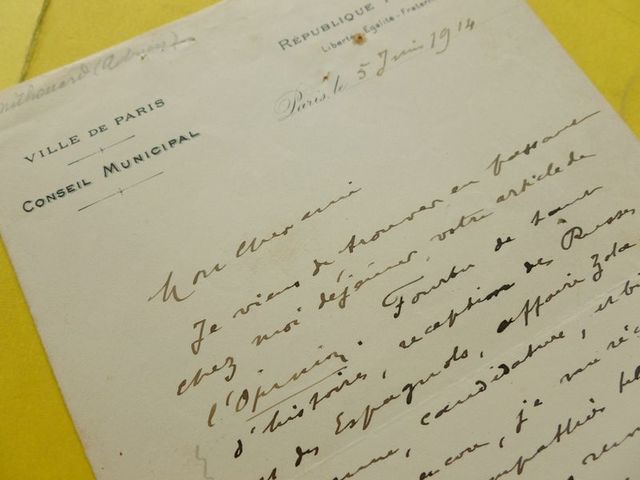 Mithouard (Adrien)
RÉPUBLIQUE
Liberté, Égalité, Fratern
VILLE DE PARIS
CONSEIL MUNICIPAL
Paris, le 5 Juin 1914
Mon cher ami
Je viens de trouver en passant
chez moi déjeuner, votre article de
l'Opinion. Fourbu de tant
d'histoires, réception des Russes
et des Espagnols, affaire Zola
candidature, et b
encore, je me ré